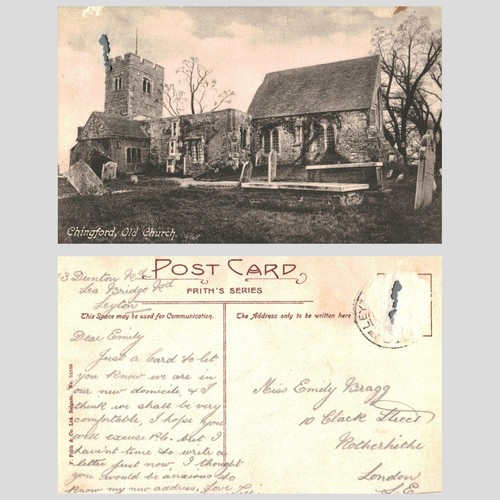 Chingford, Old Church.
POST CARD
FRITH'S SERIES
This Space may be used for Communication.
The Address only to be written here
3 Dunton Rd
Lea Bridge Rd
Leyton
Dear Emily
Just a card to let
you know we are in
our new domicile, & I
think we shall be very
comfortable, I hope you
will excuse P.C. but I
haven't time to write a
letter just now, I thought
you would be anxious to
know my new address, Love
Miss Emily Bragg
10 Clack Street
Rotherhithe
London
S.E.
F. Frith & Co. Ltd. Reigate.
LEY